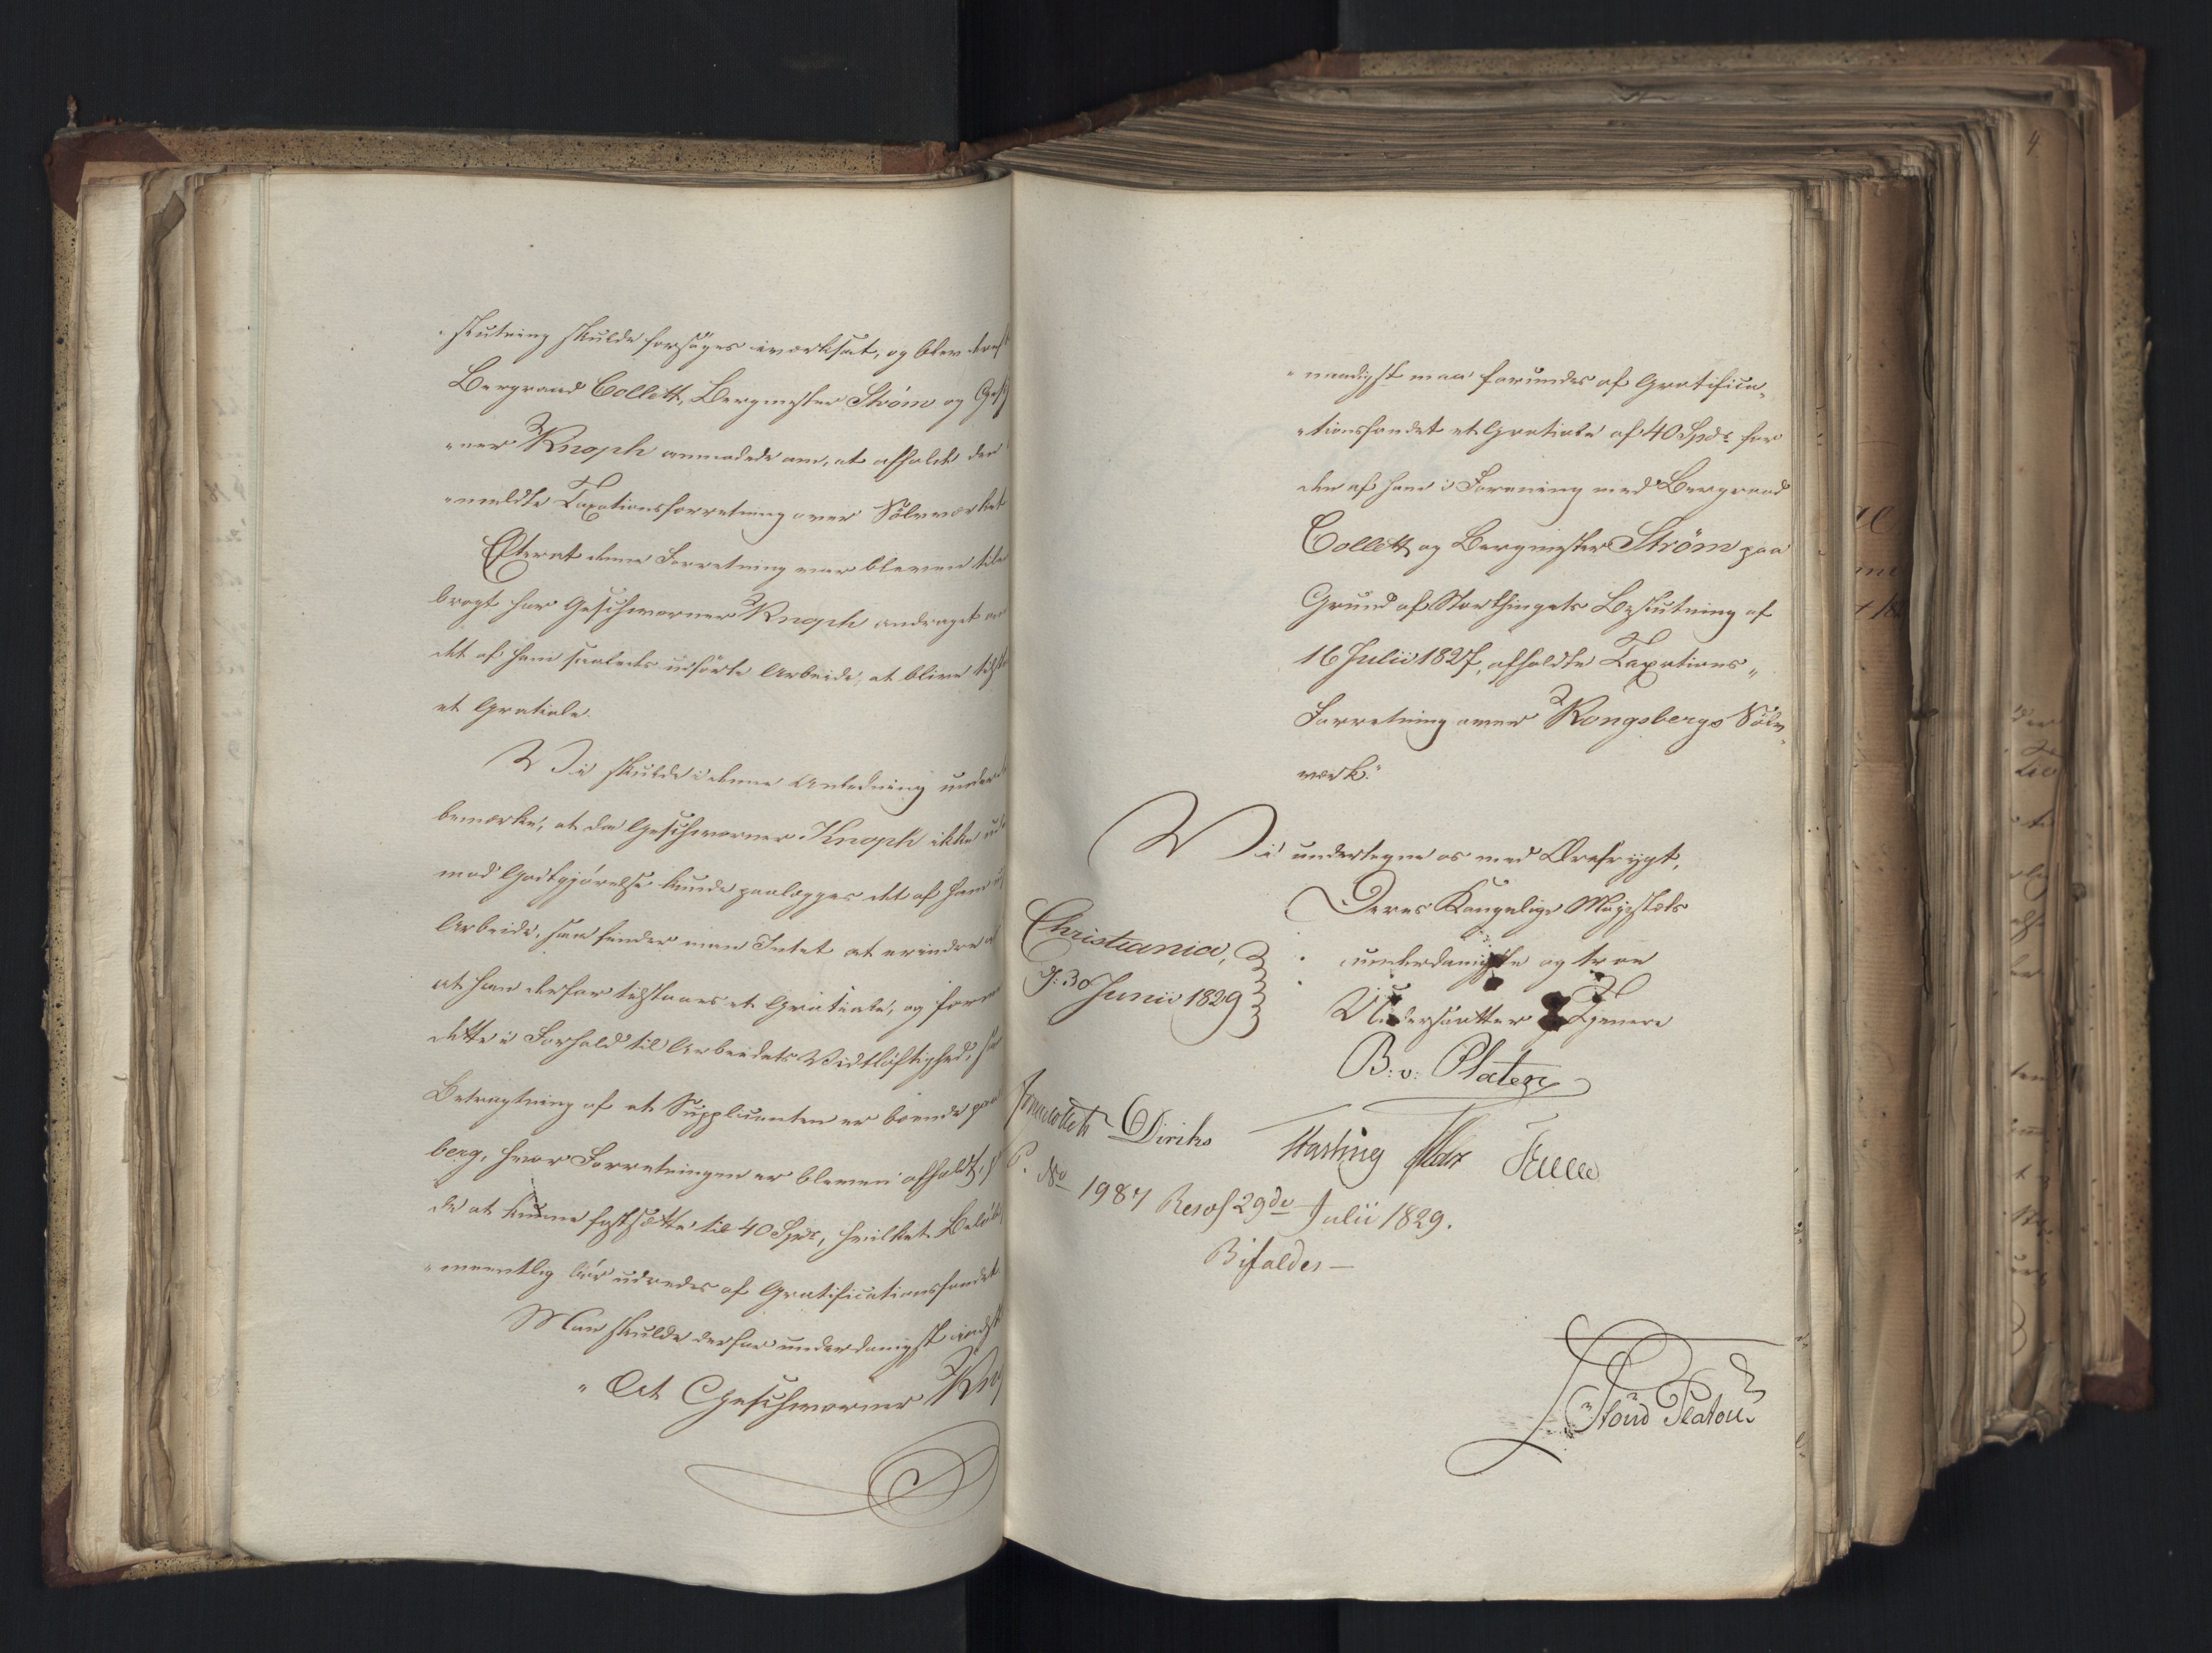 "slutning skulde forsøges iværksat, og blev deref
Bergraad Collett, Bergmester Strøm og Gesch
"ner Knoph anmodede om, at afholde den
"meldte Taxationsforretning over Sølvværket
Efterat denne Forretning var bleven tilen
bragt har Geschworner Knoph andraget om
det af ham saaledes udførte Arbeide, at blive tilst
et Gratiale.
Vi skulde i denne Anledning under
bemærke, at da Geschworner Knoph ikke ud
mod Godtgjørelse kunde paalægges det af ham
Arbeide, saa finder man Intet at erindre
at han derfor tilstaaes et Gratiale, og for
dette i Forhold til Arbeidets Vidtløftighed,
Betragtning af at Supplicanten er boende paa
berg, hvor Forretningen er bleven afholdt,
de at kunne fastsætte til 40 Spdr, hvilket Beløb
"meentlig bør udredes af Gratificationsfondet
Man skulde derfor underdanigst indst
"At Geschworner Kno
"naadigst maa forundes af Gratifica„
"tionsfondet et Gratiale af 40 Spdr for
den af ham i Forening med Bergraad
Collett og Bergmester Strøm paa
Grund af Storthingets Beslutning af
16 Julii 1827, afholdte Taxations„
Forretning over Kongsbergs Sølv„
værk."
Vi undertegne os med Ærefrygt,
Deres Kongelige Majestæts
Christiania,
underdanigste og troe
d: 30 Junii 1829
Undersaatter Tjenere
B: v: Platen
Jonas Collett Diriks Fasting
No 1987 Resol 29de Julii 1829.
Bifaldes —
Stoud Platou